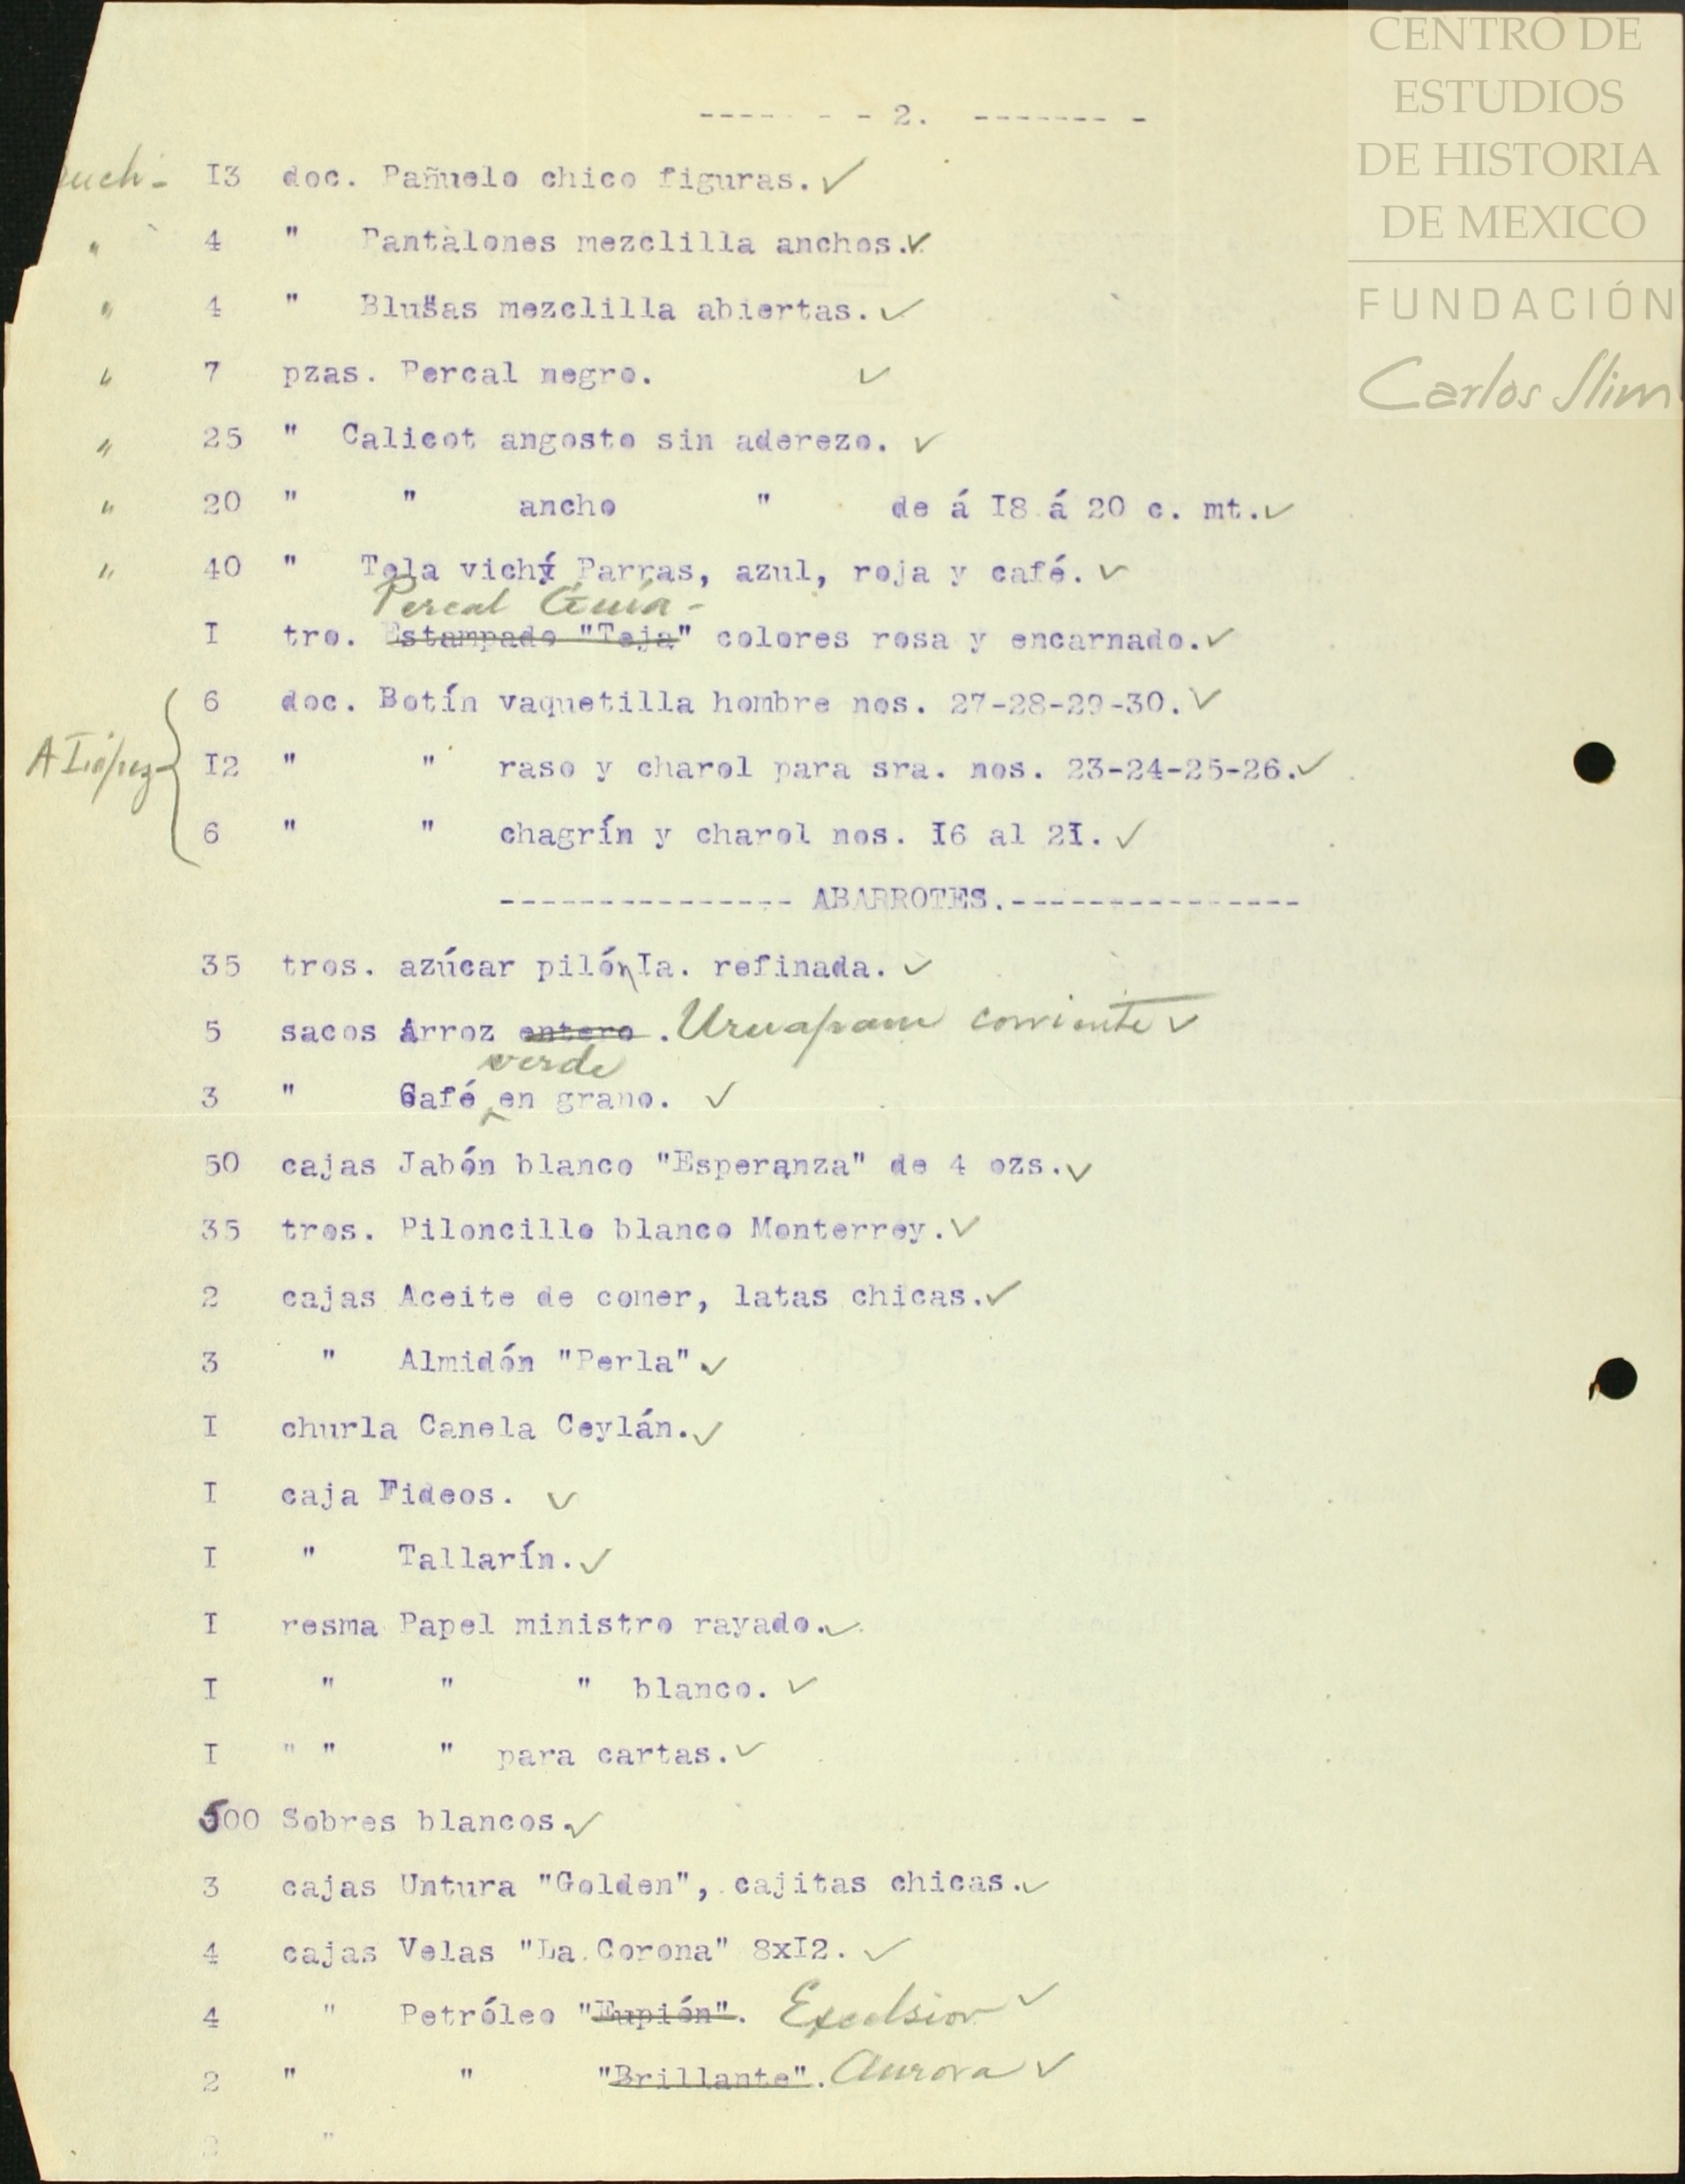 CENTRO DE
ESTUDIOS
DE HISTORIA
DE MEXICO
FUNDACIÓN
Carlos Slim
---- - - - 2. ------- -
I3 doc. Pañuelo chico figuras. ✓
" 4 " Pantalones mezclilla anchos. ✓
" 4 " Blusas mezclilla abiertas. ✓
" 7 pzas. Percal negro. ✓
" 25 " Calicot angosto sin aderezo. ✓
" 20 " " ancho " de á I8 á 20 c. mt. ✓
" 40 " Tela vichy Parras, azul, roja y café. ✓
Percal Guia -
I tro. Estampado "Teja" colores rosa y encarnado. ✓
6 doc. Botín vaquetilla hombre nos. 27-28-29-30. ✓
I2 " " raso y charol para sra. nos. 23-24-25-26. ✓
6 " " chagrín y charol nos. I6 al 2I. ✓
--------------- ABARROTES.---------------
35 tros. azúcar pilón Ia. refinada. ✓
5 sacos Arroz entero . Uruapam corriente ✓
verde
3 " Café en grano. ✓
50 cajas Jabón blanco "Esperanza" de 4 ozs. ✓
35 tros. Piloncillo blanco Monterrey. ✓
2 cajas Aceite de comer, latas chicas. ✓
3 " Almidón "Perla". ✓
I churla Canela Ceylán. ✓
I caja Fideos. ✓
I " Tallarín. ✓
I resma Papel ministro rayado. ✓
I " " " blanco. ✓
I " " " para cartas. ✓
500 Sobres blancos. ✓
3 cajas Untura "Golden", cajitas chicas. ✓
4 cajas Velas "La Corona" 8xI2. ✓
4 " Petróleo "Eupión". Excelsior ✓
2 " " "Brillante". Aurora ✓
2 "